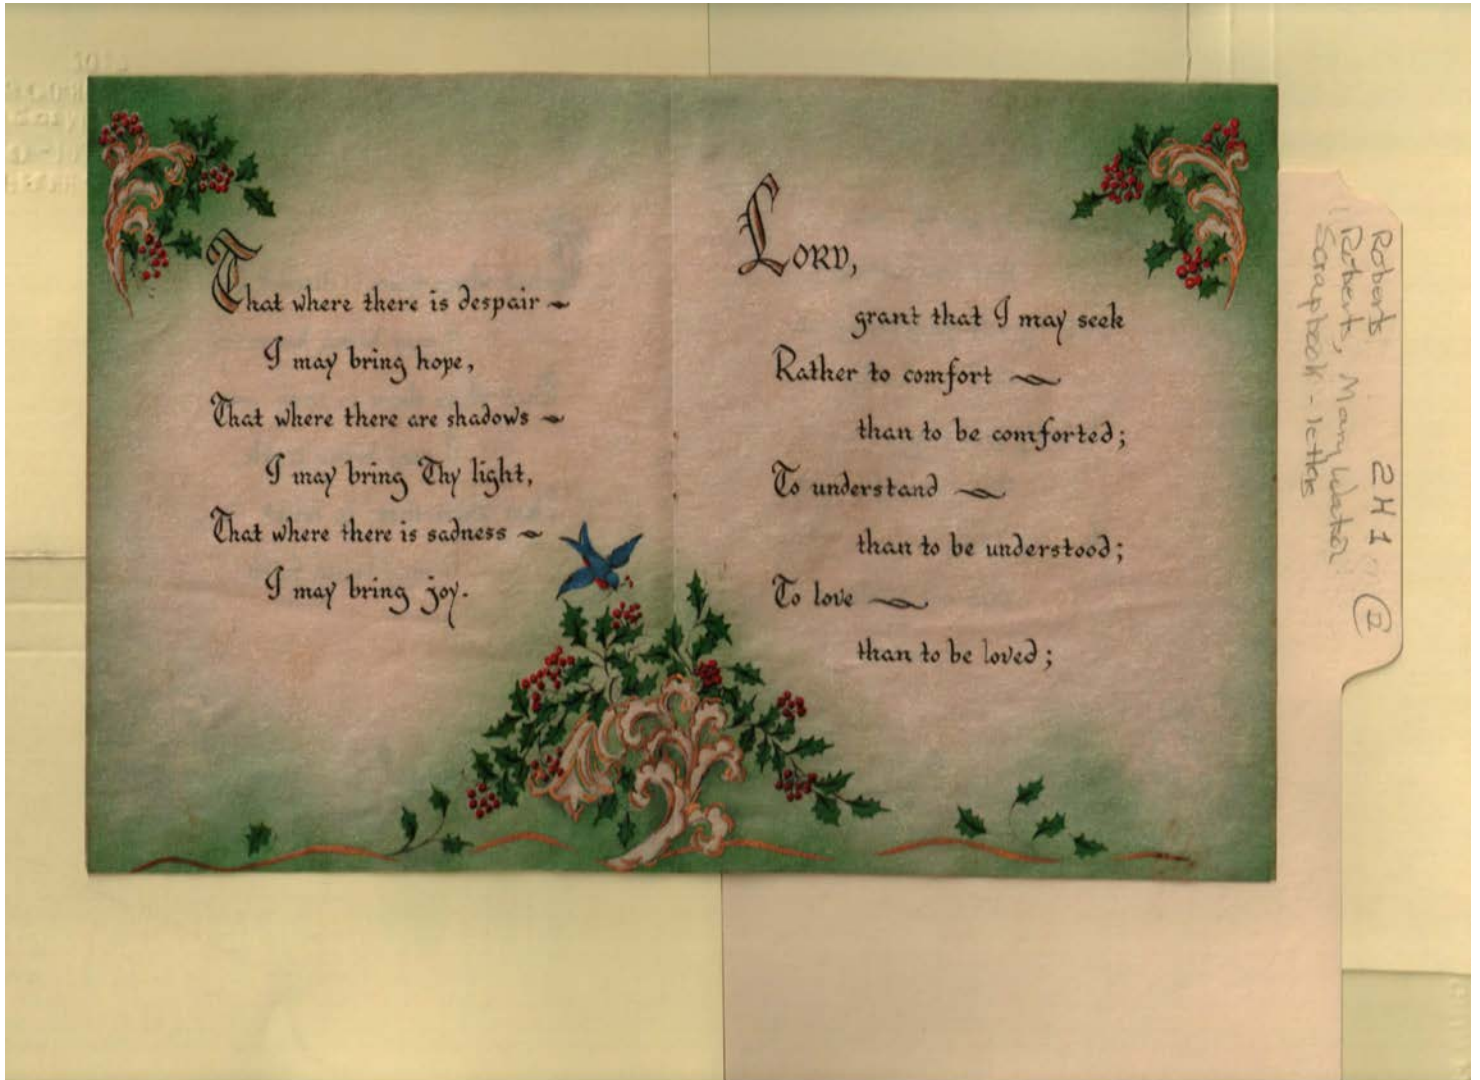 That where there is despair ~
I may bring hope,
That where there are shadows ~
I may bring Thy light,
That where there is sadness ~
I may bring joy.
Lord,
grant that I may seek
Rather to comfort ~
than to be comforted;
To understand ~
than to be understood;
To love ~
than to be loved;
Roberts 2H1m II
Roberts, Mary
Scrapbook - letters